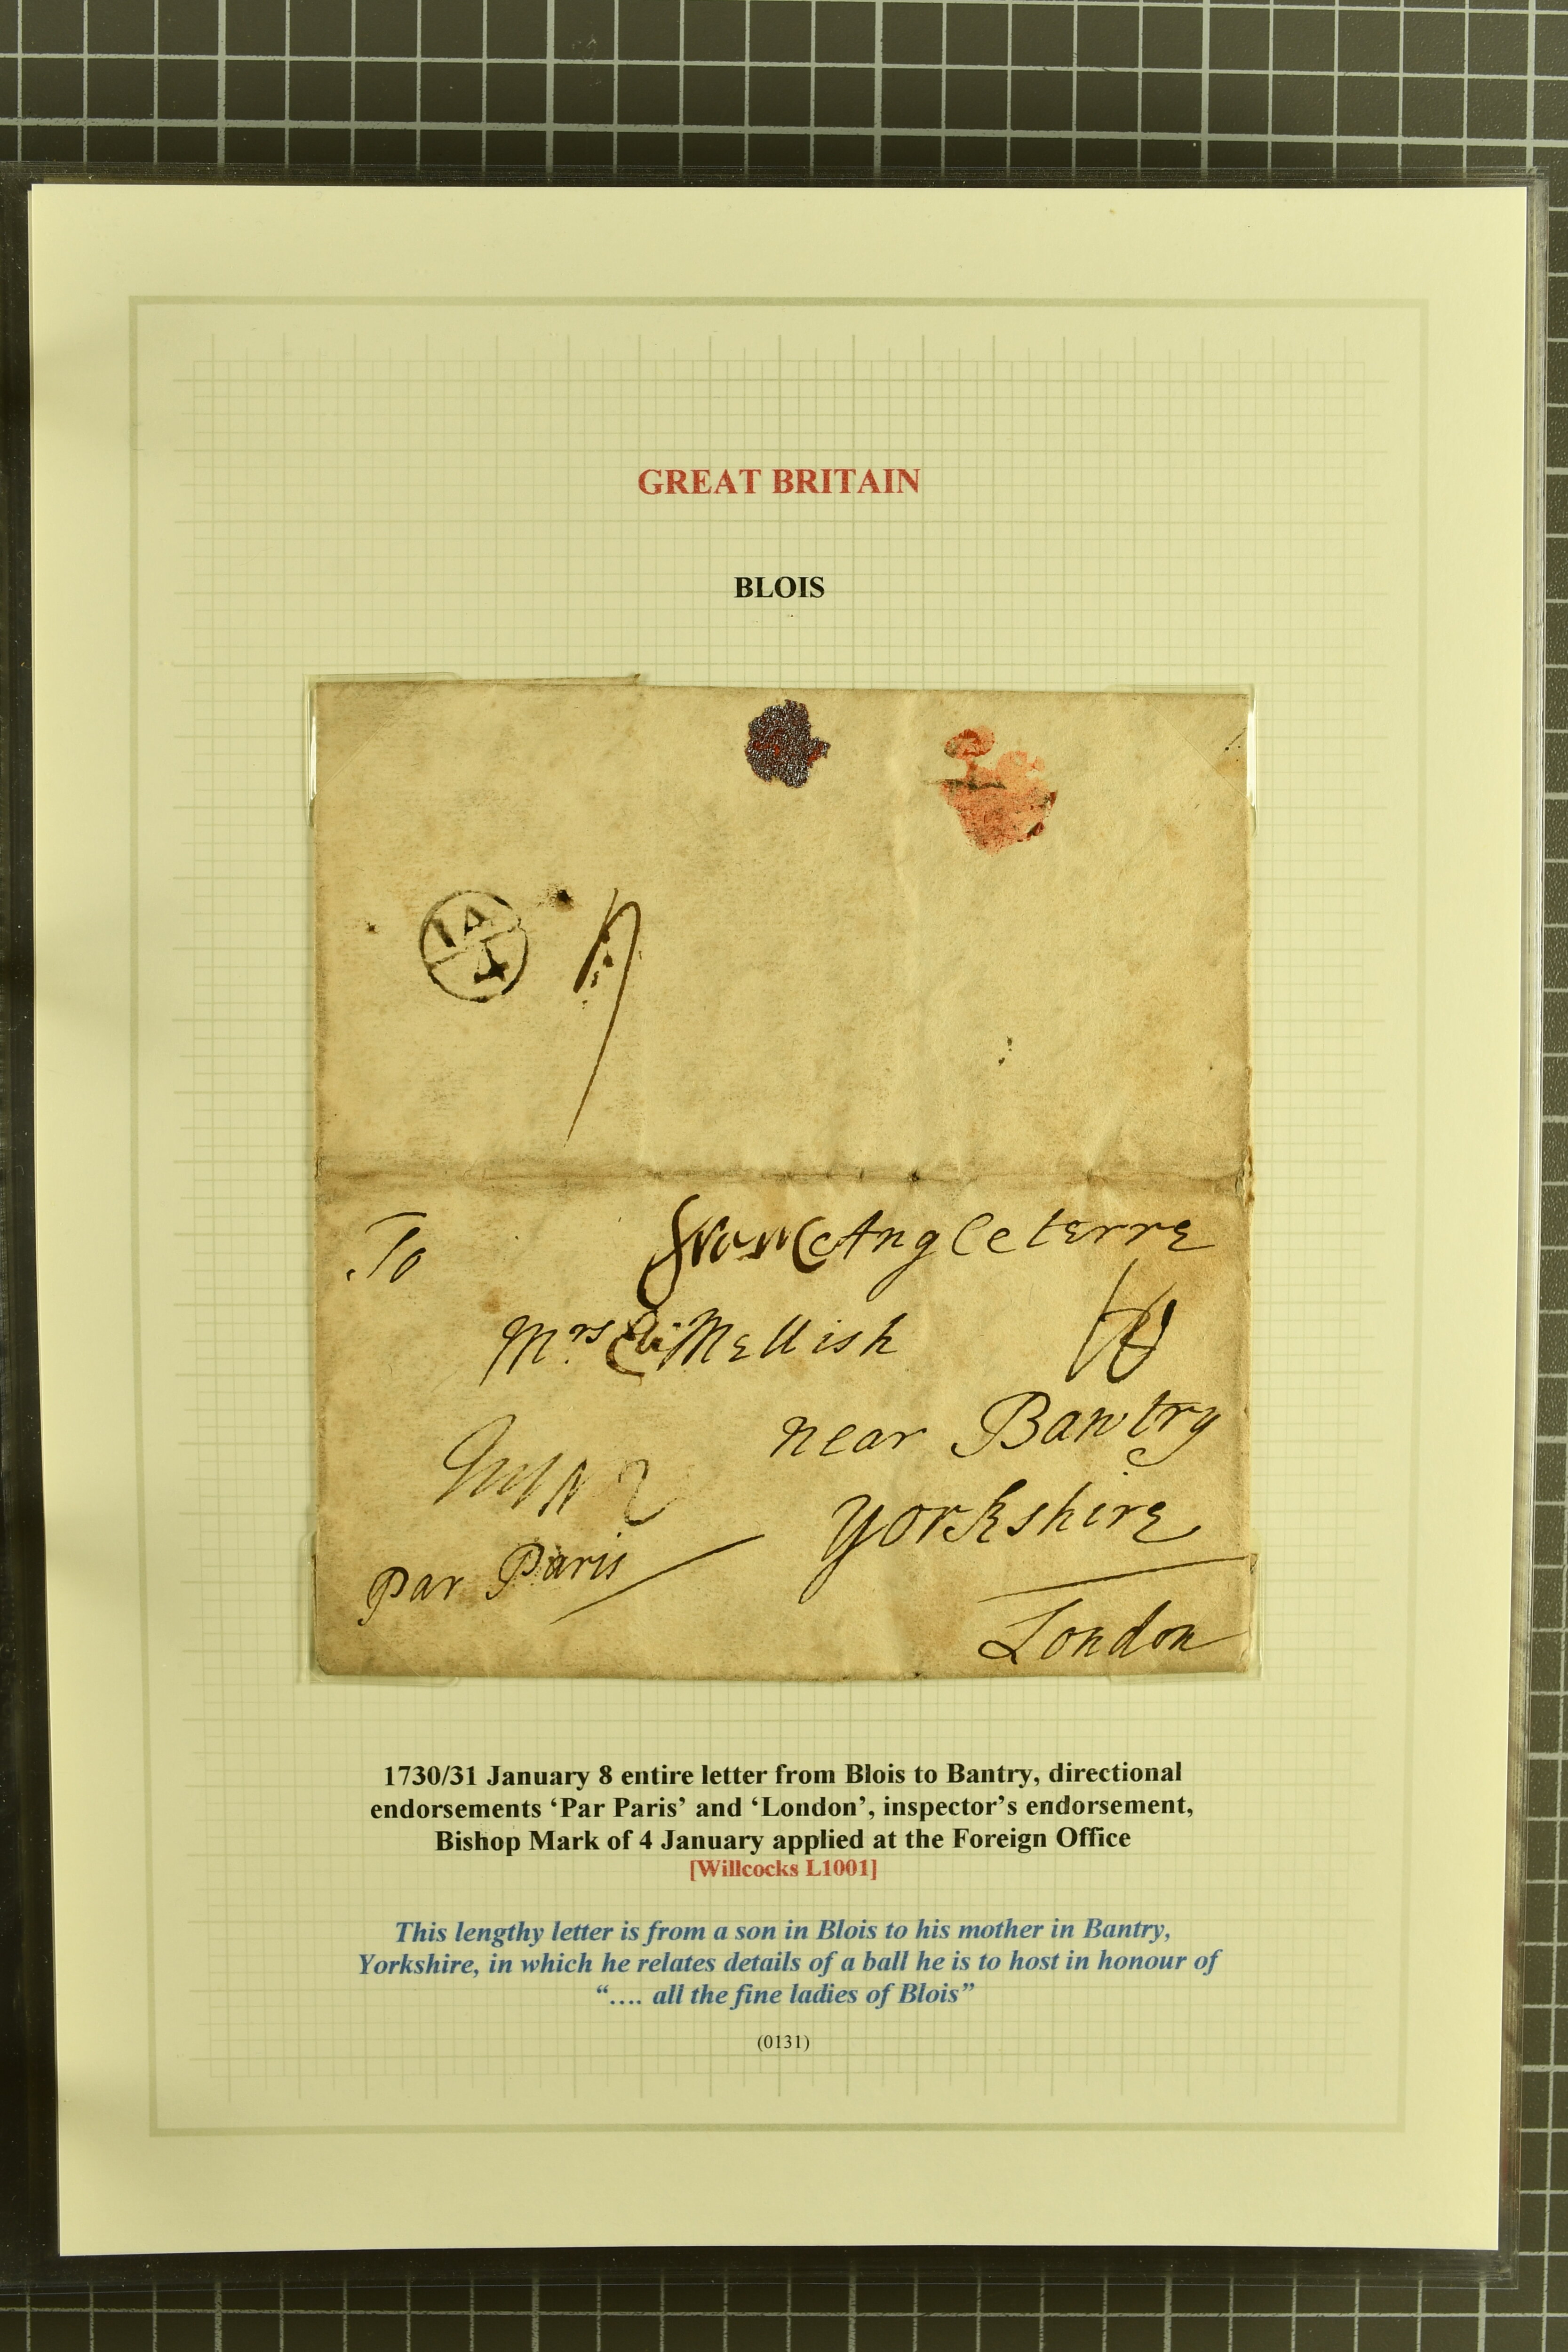 GREAT BRITAIN
BLOIS
IA
4
To
Angleterre
Mrs Mellish
near Bawtry
Yorkshire
Par Paris
London
1730/31 January 8 entire letter from Blois to Bantry, directional
endorsements ‘Par Paris’ and ‘London’, inspector’s endorsement,
Bishop Mark of 4 January applied at the Foreign Office
[Willcocks L1001]
This lengthy letter is from a son in Blois to his mother in Bantry,
Yorkshire, in which he relates details of a ball he is to host in honour of
“.... all the fine ladies of Blois”
(0131)